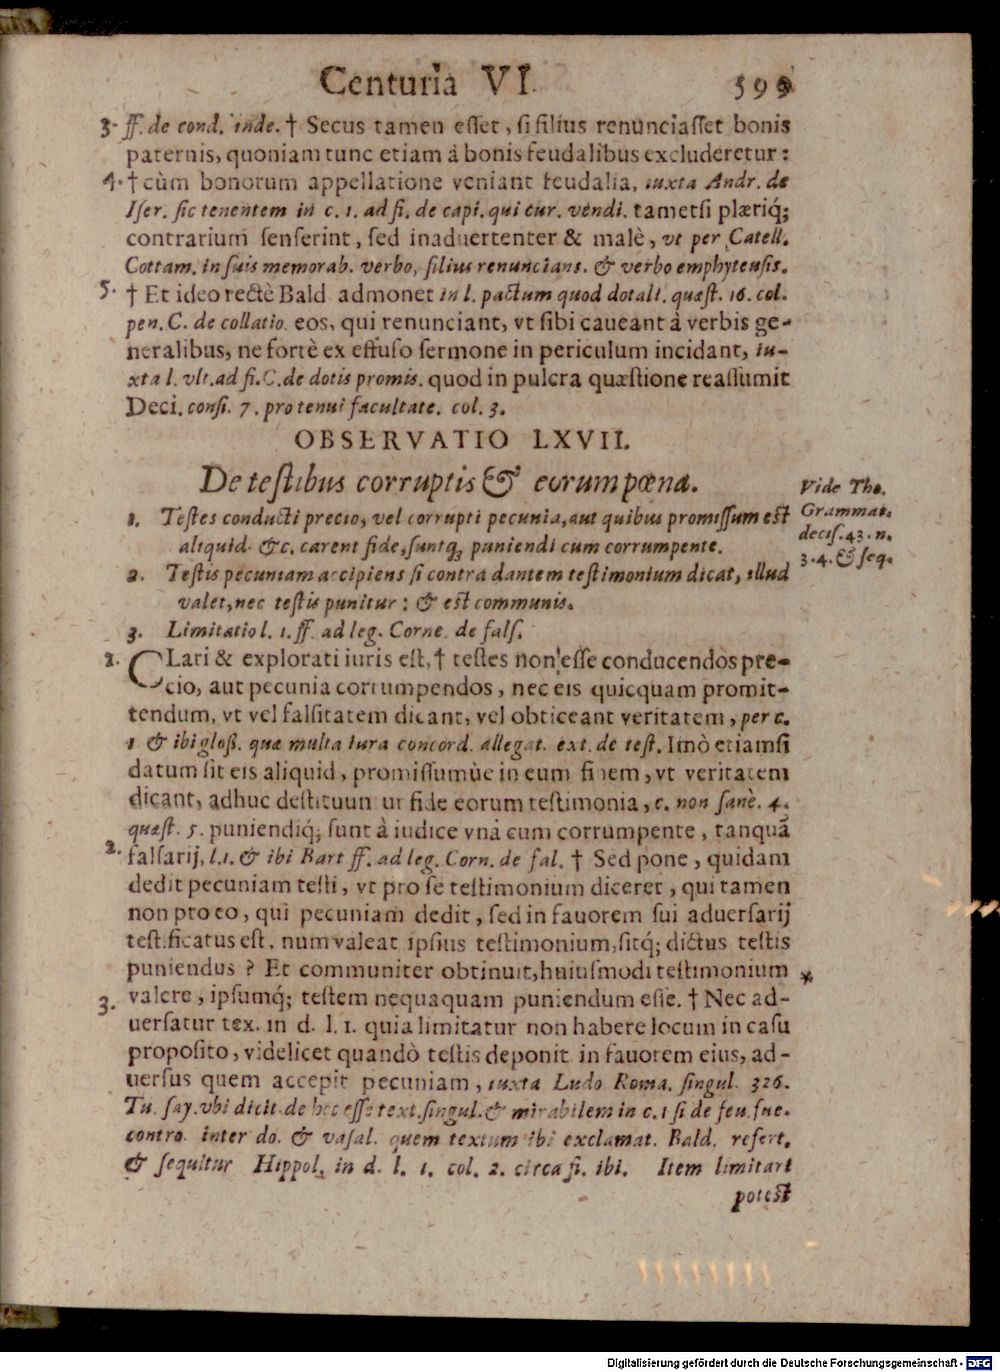 Centuria VI. 599
3. ff. de cond. inde. † Secus tamen esset, si filius renunciasset bonis
paternis, quoniam tunc etiam à bonis feudalibus excluderetur:
4. † cùm bonorum appellatione veniant feudalia, iuxta Andr. de
Iser. sic tenentem in c. 1. ad fi. de capi. qui cur. vendi. tametsi plæriq;
contrarium senserint, sed inaduertenter & malè, vt per Catell.
Cottam. in suis memorab. verbo, filius renuncians. & verbo emphyteusis.
5. † Et ideo rectè Bald admonet in l. pactum quod dotali. quæst. 16. col.
pen. C. de collatio. eos, qui renunciant, vt sibi caueant à verbis ge-
neralibus, ne fortè ex effuso sermone in periculum incidant, iu-
xta l. vlt. ad fi. C. de dotis promis. quod in pulcra quæstione reassumit
Deci. consi. 7. pro tenui facultate. col. 3.
OBSERVATIO LXVII.
De testibus corruptis & eorum pœna.
Vide Tho.
Grammat.
decis. 43. n.
3. 4. & seq.
1. Testes conducti precio, vel corrupti pecunia, aut quibus promissum est
aliquid. &c. carent fide, suntq; puniendi cum corrumpente.
2. Testis pecuniam accipiens si contra dantem testimonium dicat, illud
valet, nec testis punitur: & est communis.
3. Limitatio l. 1. ff. ad leg. Corne. de fals.
1. CLari & explorati iuris est, † testes non esse conducendos pre-
cio, aut pecunia corrumpendos, nec eis quicquam promit-
tendum, vt vel falsitatem dicant, vel obticeant veritatem, per c.
1 & ibi gloß. quæ multa iura concord. allegat. ext. de test. Imò etiamsi
datum sit eis aliquid, promissumùe in eum finem, vt veritatem
dicant, adhuc destituuntur fide eorum testimonia, c. non sanè. 4.
quæst. 5. puniendiq; sunt à iudice vnà cum corrumpente, tanquã
2. falsarij, l. 1. & ibi Bart ff. ad leg. Corn. de fal. † Sed pone, quidam
dedit pecuniam testi, vt pro se testimonium diceret, qui tamen
non pro eo, qui pecuniam dedit, sed in fauorem sui aduersarij
testificatus est, num valeat ipsius testimonium, sitq; dictus testis
puniendus? Et communiter obtinuit, huiusmodi testimonium *
3. valere, ipsumq; testem nequaquam puniendum esse. † Nec ad-
uersatur tex. in d. l. 1. quia limitatur non habere locum in casu
proposito, videlicet quandò testis deponit in fauorem eius, ad-
uersus quem accepit pecuniam, iuxta Ludo Roma. singul. 326.
Tu. say. vbi dicit de hoc esse text. singul. & mirabilem in c. 1 si de feu. fue.
contro. inter do. & vasal. quem textum ibi exclamat. Bald. refert.
& sequitur Hippol. in d. l. 1. col. 2. circa fi. ibi. Item limitari
potest
Digitalisierung gefördert durch die Deutsche Forschungsgemeinschaft - DFG